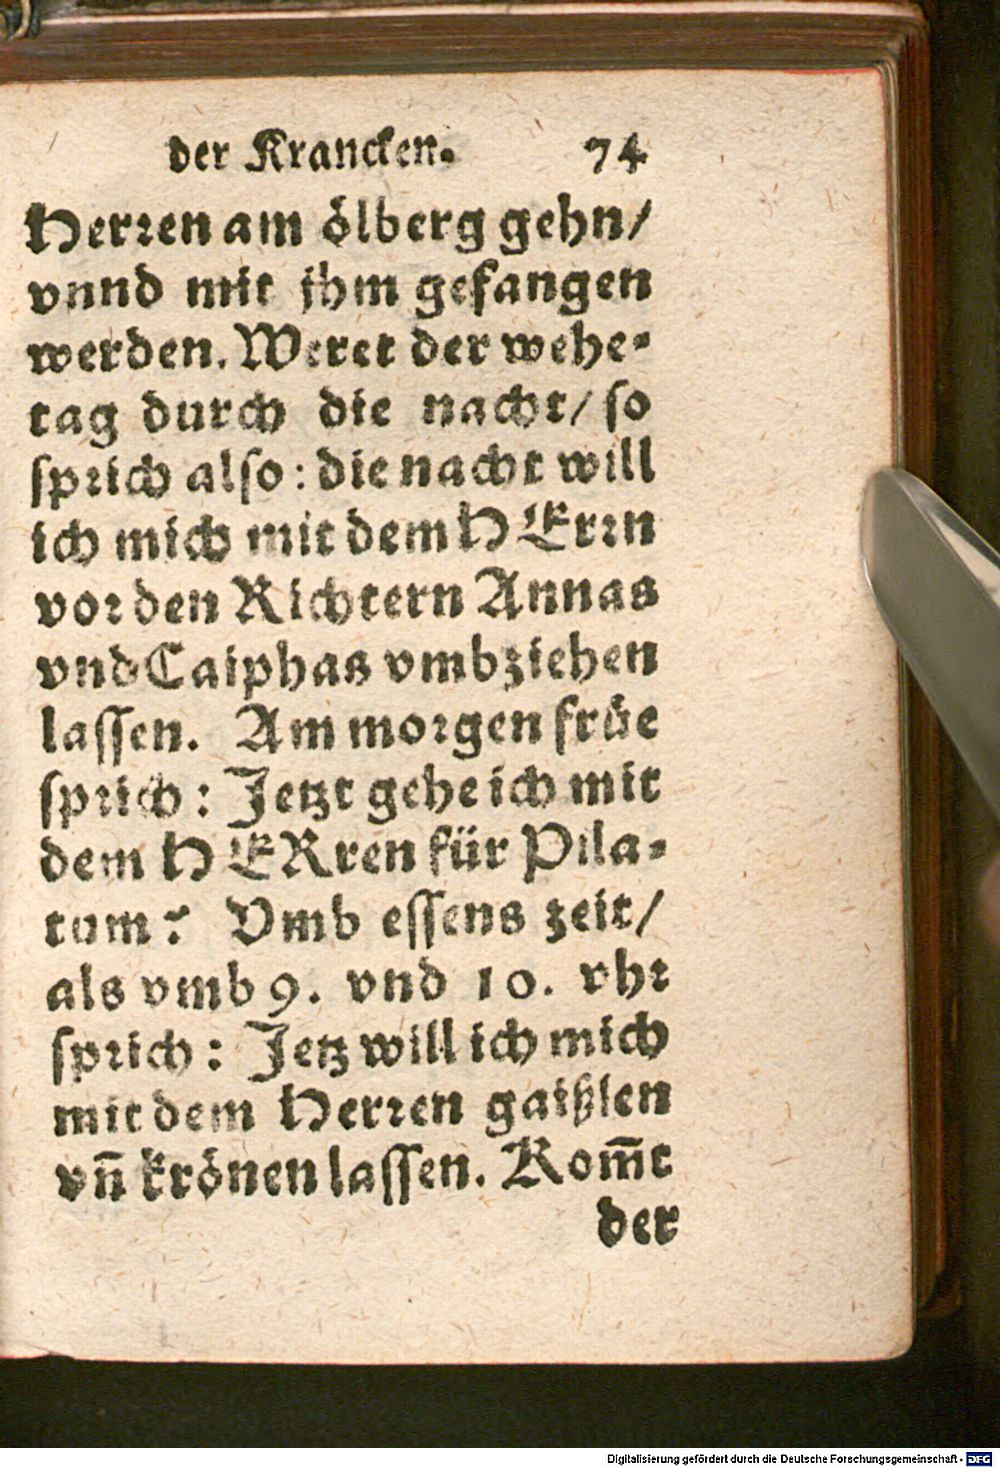 der Krancken. 74
Herren am ölberg gehn/
vnnd mit jhm gefangen
werden. Weret der wehe-
tag durch die nacht/ so
sprich also: die nacht will
ich mich mit dem HErrn
vor den Richtern Annas
vnd Caiphas vmbziehen
lassen. Am morgen früe
sprich: Jetzt gehe ich mit
dem HERren für Pila-
tum? Vmb essens zeit/
als vmb 9. vnd 10. vhr
sprich: Jetz will ich mich
mit dem Herren gaißlen
vn̄ krönen lassen. Kom̄t
der
Digitalisierung gefördert durch die Deutsche Forschungsgemeinschaft - DFG